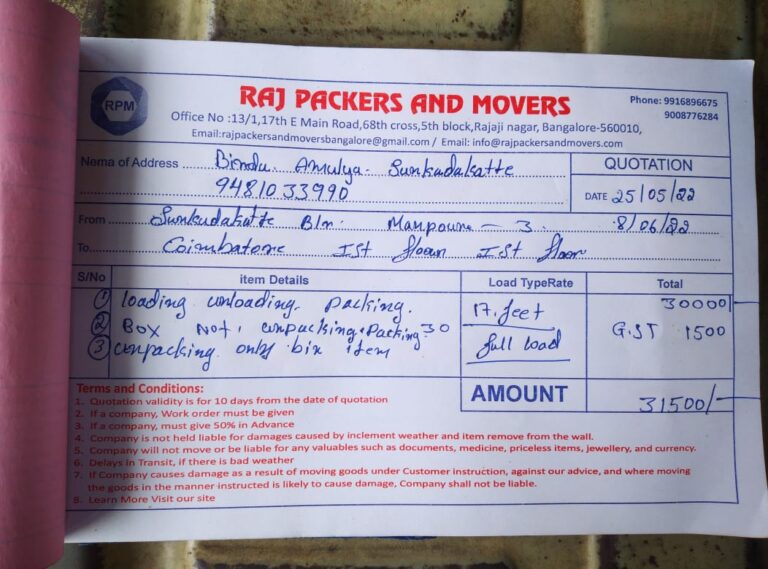 RPM
RAJ PACKERS AND MOVERS
Phone: 9916896675
9008776284
Office No :13/1,17th E Main Road,68th cross,5th block,Rajaji nagar, Bangalore-560010,
Email:rajpackersandmoversbangalore@gmail.com / Email: info@rajpackersandmovers.com
Nema of Address Bindu. Amulya. Sunkadakatte
94810 33990
QUOTATION
DATE 25/05/22
From Sunkadakatte Bln. Manpoune - 3. 8/06/22
To Coimbatore Ist floor Ist floor
S/No item Details Load TypeRate Total
1 loading unloading. packing. 17. feet 30000
2 Box Not, unpacking. Packing 30 full load G.ST 1500
3 unpacking only bix item
AMOUNT 31500/-
Terms and Conditions:
1. Quotation validity is for 10 days from the date of quotation
2. If a company, Work order must be given
3. If a company, must give 50% in Advance
4. Company is not held liable for damages caused by inclement weather and item remove from the wall.
5. Company will not move or be liable for any valuables such as documents, medicine, priceless items, jewellery, and currency.
6. Delays In Transit, if there is bad weather
7. If Company causes damage as a result of moving goods under Customer instruction, against our advice, and where moving
the goods in the manner instructed is likely to cause damage, Company shall not be liable.
8. Learn More Visit our site